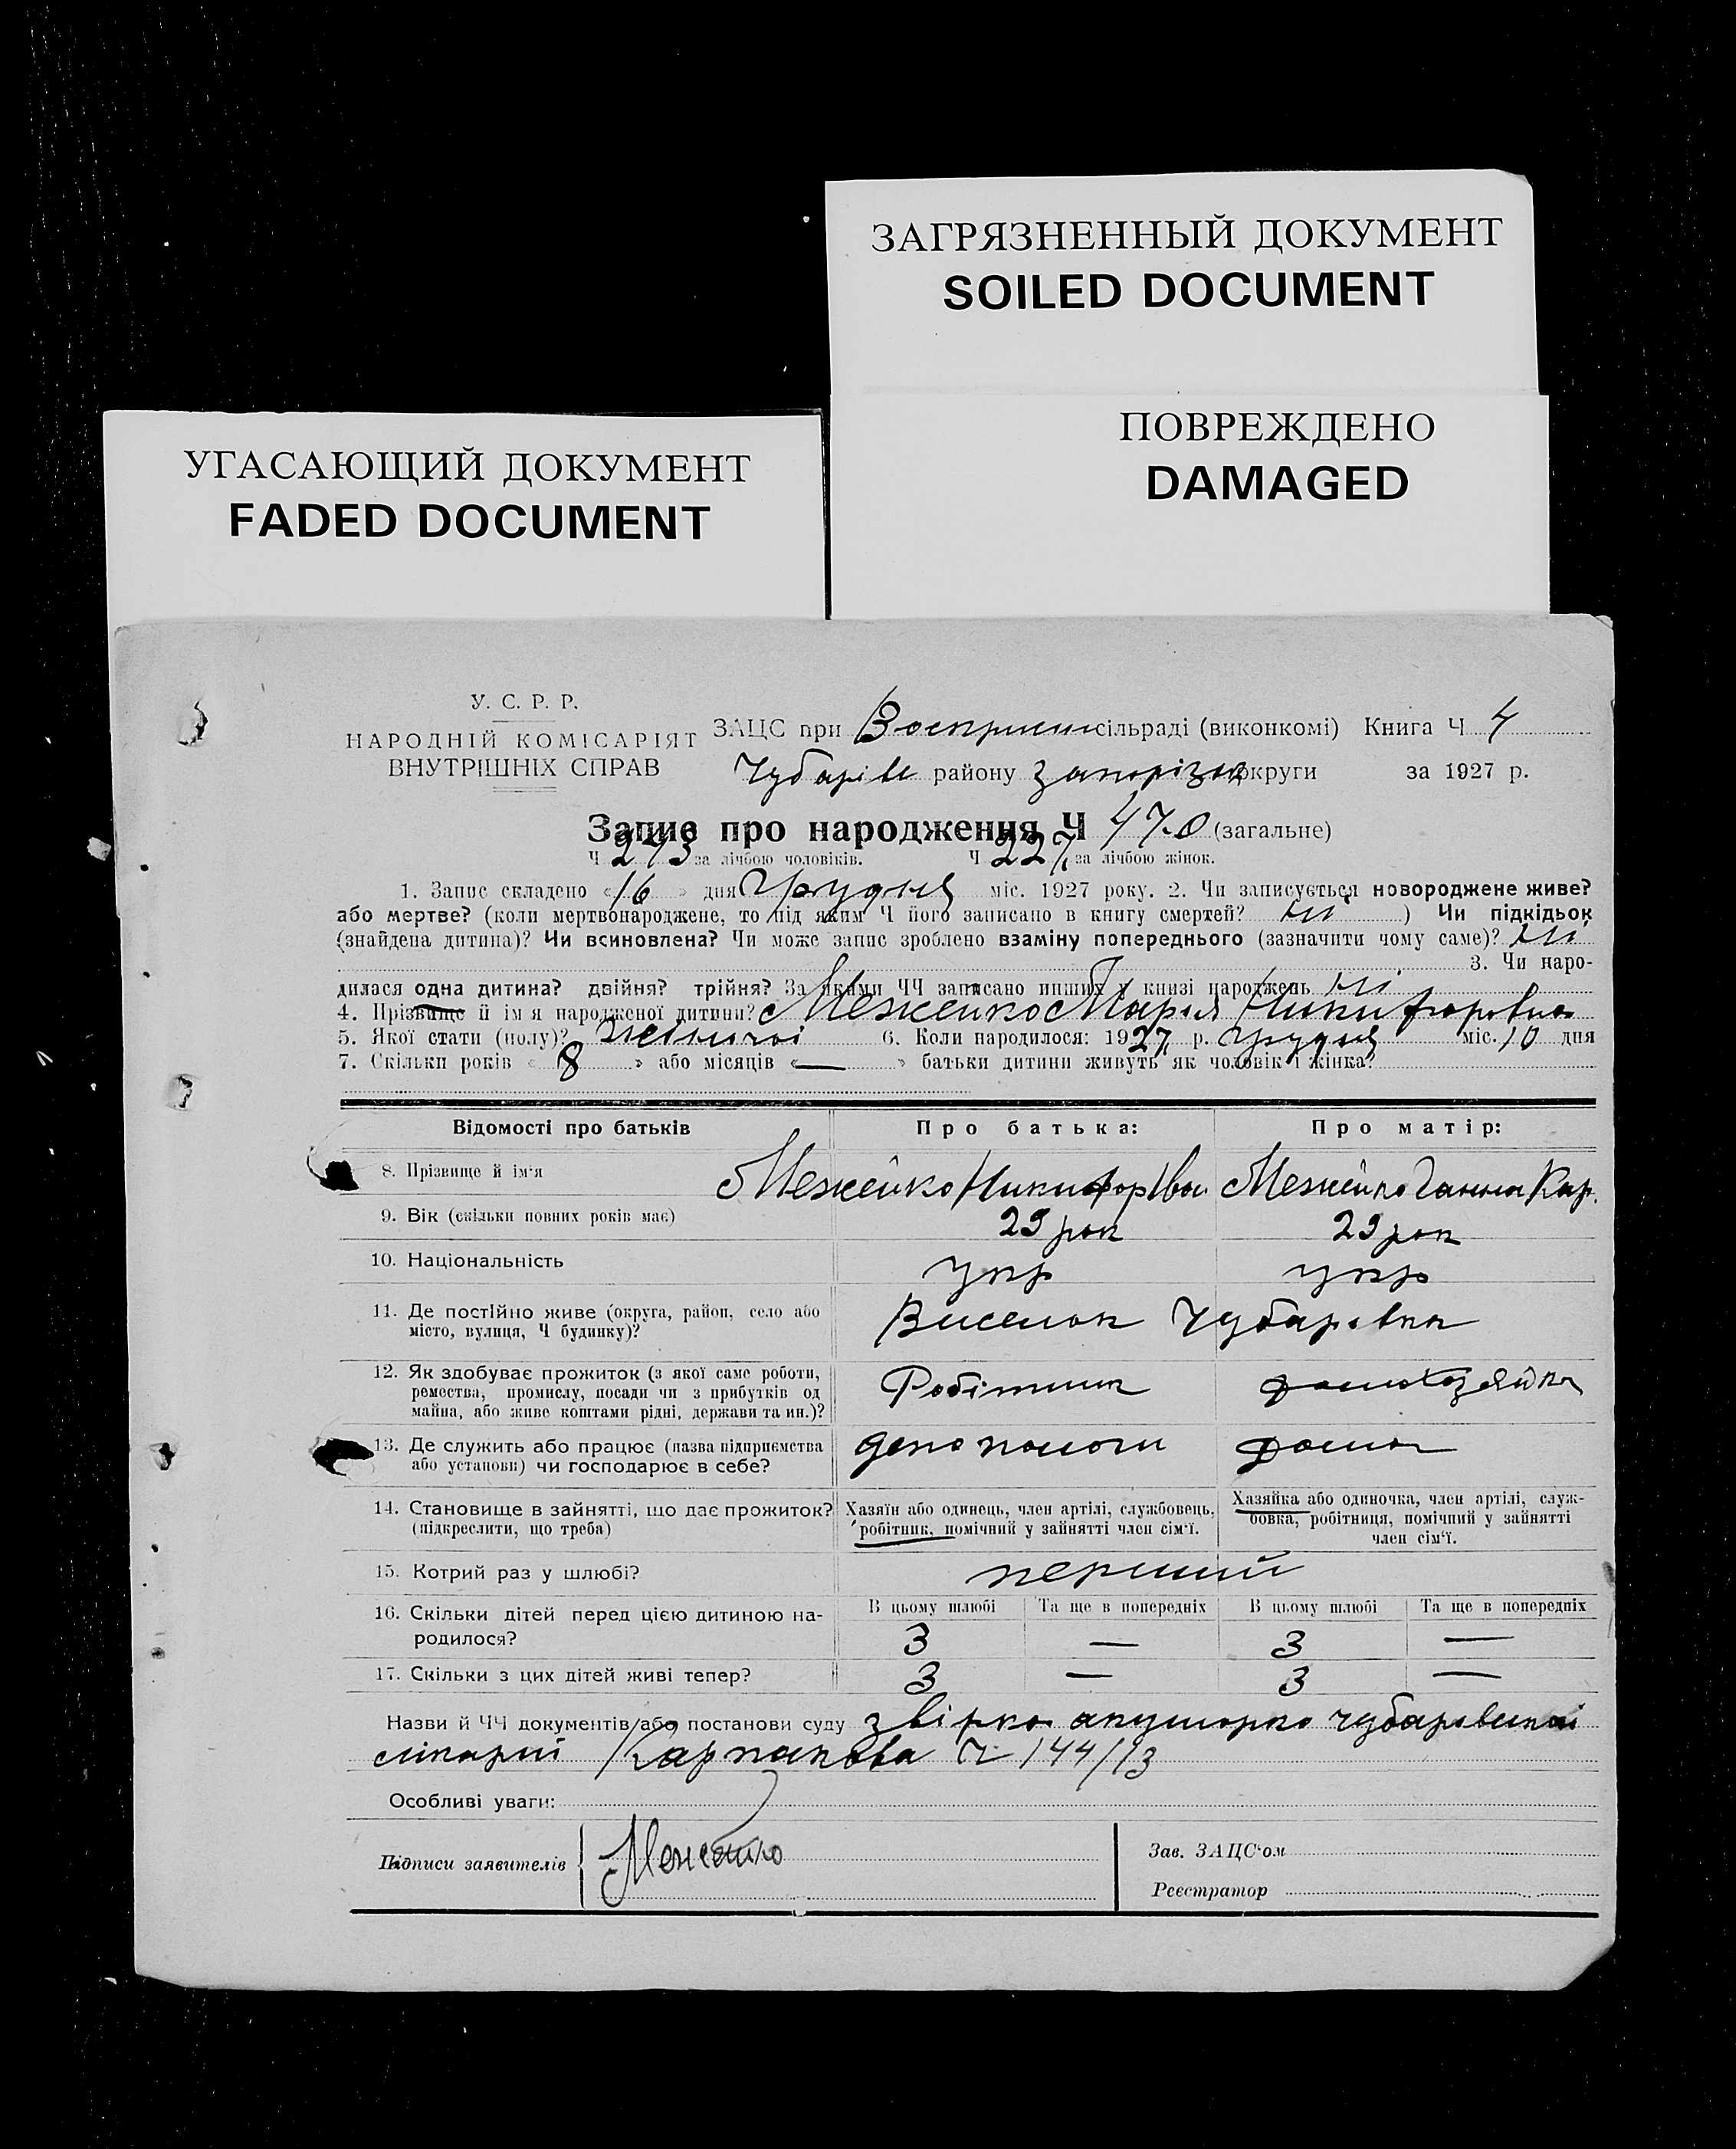 ЗАГРЯЗНЕННЫЙ ДОКУМЕНТ
SOILED DOCUMENT
ПОВРЕЖДЕНО
DAMAGED
УГАСАЮЩИЙ ДОКУМЕНТ
FADED DOCUMENT
У. С. Р. Р.
НАРОДНІЙ КОМІСАРІЯТ
ВНУТРІШНІХ СПРАВ
ЗАЦС при сільраді (виконкомі) Книга Ч 4
Чубарівс району Запорізьк округи за 1927 р.
Запис про народження Ч 470 (загальне)
Ч 243 за лічбою чоловіків. Ч 227 за лічбою жінок.
1. Запис складено «16» дня Грудня міс. 1927 року. 2. Чи записується новороджене живе?
або мертве? (коли мертвонароджене, то під яким Ч його записано в книгу смертей? ні ) Чи підкідьок
(знайдена дитина)? Чи всиновлена? Чи може запис зроблено взаміну попереднього (зазначити чому саме)? ні
3. Чи наро-
дилася одна дитина? двійня? трійня? За якими ЧЧ записано инших у книзі народжень ні
4. Прізвище й ім'я народженої дитини? Межейко Мария Никифоровна
5. Якої стати (полу)? жіночої 6. Коли народилося: 1927 р. Грудня міс. 10 дня
7. Скільки років « 8 » або місяців « — » батьки дитини живуть як чоловік і жінка?
Відомості про батьків Про батька: Про матір:
8. Прізвище й ім'я Межейко Никифор Іван Межейко Ганна Кар.
9. Вік (скільки повних років має) 29 рок 29 рок
10. Національність укр укр
11. Де постійно живе (округа, район, село або
місто, вулиця, Ч будинку)? Виселок Чубарівка
12. Як здобуває прожиток (з якої саме роботи,
ремества, промислу, посади чи з прибутків од
майна, або живе коштами рідні, держави та ин.)? Робітник домохозяйка
13. Де служить або працює (назва підприємства
або установи) чи господарює в себе? депо пологи дома
14. Становище в зайнятті, що дає прожиток?
(підкреслити, що треба)
Хазяїн або одинець, член артілі, службовець,
робітник, помічний у зайнятті член сім'ї.
Хазяйка або одиночка, член артілі, служ-
бовка, робітниця, помічний у зайнятті
член сім'ї.
15. Котрий раз у шлюбі? перший
16. Скільки дітей перед цією дитиною на-
родилося?
В цьому шлюбі Та ще в попередніх В цьому шлюбі Та ще в попередніх
3 — 3 —
17. Скільки з цих дітей живі тепер? 3 — 3 —
Назви й ЧЧ документів або постанови суду звірка акушорка чубарівської
лікарні Карпакова Ч 144/13
Особливі уваги:
Підписи заявителів Межейко
Зав. ЗАЦС'ом
Реєстратор